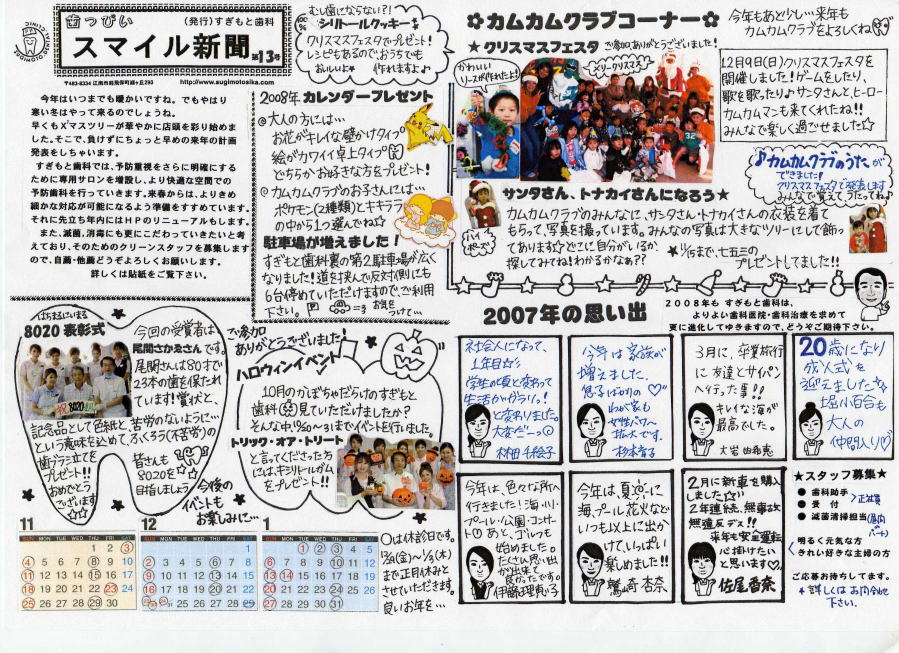 歯っぴぃ
(発行)すぎもと歯科
スマイル新聞 第13号
http://www.sugimotosika.com
今年はいつまでも暖かいですね。でもやはり
寒い冬はやって来るのでしょうね。
早くもX'マスツリーが華やかに店頭を彩り始めま
した。そこで、負けずにちょっと早めの来年の計画
発表をしちゃいます。
すぎもと歯科では、予防重視をさらに明確にする
ために専用サロンを増設し、より快適な空間での
予防歯科を行っていきます。来春からは、よりきめ
細かな対応が可能になるよう準備をすすめています。
それに先立ち年内にはHPのリニューアルもします。
また、滅菌、消毒にも更にこだわっていきたいと考
えており、そのためのクリーンスタッフを募集します
ので、自薦・他薦どうぞよろしくお願いします。
詳しくは貼紙をご覧下さい。
むし歯にならない?!
100% キシリトールクッキーを
クリスマスフェスタでプレゼント!
レシピもあるので、おうちでも
おいしいよ 作れますよ♪
2008年 カレンダープレゼント
@大人の方には…
お花がキレイな壁かけタイプ
絵がカワイイ卓上タイプ
どちらかお好きな方をプレゼント!
@カムカムクラブのお子さんには…
ポケモン(2種類)とキキララ
の中から1つ選んでね☆
駐車場が増えました!
すぎもと歯科裏の第2駐車場が広く
なりました!道を挟んで反対側にも
6台停めていただけますので、ご利用
下さい。 P お気を
つけて…
✿カムカムクラブコーナー✿
今年もあと少し…来年も
カムカムクラブをよろしくね
★クリスマスフェスタ ご参加ありがとうございました!
かわいい
リースが作れたよ!
メリークリスマス
12月9日(日)クリスマスフェスタを
開催しました!ゲームをしたり、
歌を歌ったり♪サンタさんと、ヒーロー
カムカムマンも来てくれたね!!
みんなで楽しく過ごせました☆
♪カムカムクラブのうたが
できました!
クリスマスフェスタで発表します
みんなで覚えてうたってね♪
サンタさん、トナカイさんになろう★
カムカムクラブのみんなに、サンタさん・トナカイさんの衣装を着て
もらって、写真を撮っています。みんなの写真は大きなツリーにして飾っ
てあります☆どこに自分がいるか、
探してみてね!わかるかなぁ??
ハイ
ポーズ
★11/15まで、七五三の
プレゼントしてました!!
はちまるにいまる
8020 表彰式
祝 8020
今回の受賞者は
尾関さかゑさんです。
尾関さんは80才で
23本の歯を保たれて
います!賞状と、
記念品として色紙と、苦労のないように…
という意味を込めて、ふくろう(不苦労)の
歯ブラシ立てを
プレゼント!!
おめでとう
ございます
☆☆
皆さんも
8020を
目指しましょう
ご参加
ありがとうございました!
ハロウィンイベント
10月のかぼちゃだらけのすぎもと
歯科 見ていただけましたか?
そんな中、10/20〜31までイベントを行いました。
トリック・オア・トリート
と言ってくださった方
には、キシリトールガム
をプレゼント!!
今後の
イベントも
お楽しみに…
11
SUN MON TUE WED THU FRI SAT
1 2 3
4 5 6 7 8 9 10
11 12 13 14 15 16 17
18 19 20 21 22 23 24
25 26 27 28 29 30
12
SUN MON TUE WED THU FRI SAT
1
2 3 4 5 6 7 8
9 10 11 12 13 14 15
16 17 18 19 20 21 22
1
SUN MON TUE WED THU FRI SAT
1 2 3 4 5
6 7 8 9 10 11 12
13 14 15 16 17 18 19
20 21 22 23 24 25 26
27 28 29 30 31
○は休診日です。
12/28(金)〜1/3(木)
まで正月休みと
させていただきます。
良いお年を…
2007年の思い出
2008年も すぎもと歯科は、
よりよい歯科医院・歯科治療を求めて
更に進化してゆきますので、どうぞご期待下さい。
社会人になって、
1年目☆
学生の頃と変わって
生活がガラリ!
と変わりました。
大変だーっ
林田 千絵子
今年は家族が
増えました。
息子ばかりの♡
わが家も
女性パワー
拡大です。
杉本智子
3月に、卒業旅行
に友達とサイパン
へ行った事!!
キレイな海が
最高でした。
大岩 由希恵
20歳になり
成人式を
迎えました☆
堀 小百合も
大人の
仲間入り♡
今年は、色々な所へ
行きました!海・川・
プール・公園・コンサート
あと、ゴルフも
始めました。
たくさん思い出
が出来て
良かったです。
伊藤 理恵子
今年は、夏に
海、プール、花火など
いつも以上に出か
けて、いっぱい
楽しめました!!
鷲崎 杏奈
2月に新車を購入
しました☆
2年連続、無事故
無違反デス!!
来年も安全運転
心掛けたい
と思います♡
佐尾香奈
★スタッフ募集★
● 歯科助手
● 受付
正社員
● 滅菌清掃担当
パート
明るく元気な方
きれい好きな主婦の方
ご応募お待ちしてます。
★詳しくはお問合せ
下さい。